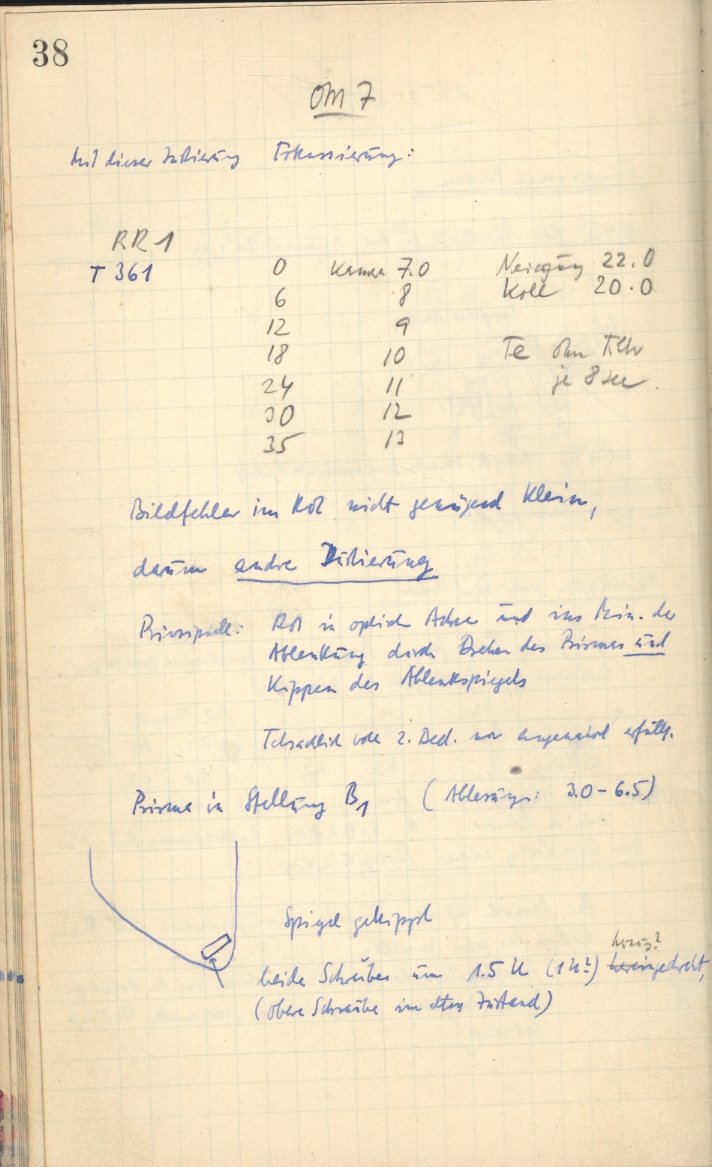 38
OM 7
Mit dieser Justierung Fokussierung:
RR 1
T 361 0 Kamera 7.0 Neigung 22.0
6 8 Koll 20.0
12 9
18 10 Te ohne Filter
24 11 je 8 sec
30 12
35 13
Bildfehler im Rot nicht genügend klein,
darum andre Justierung
Prinzipiell: Rot in optisch Achse und ins Min. der
Ablenkung durch Drehen des Prismas und
Kippen des Ablenkspiegels
Tatsächlich 2. Bed. nur ungenähert erfüllt.
Prisma in Stellung B1 (Ablesung: 3.0 - 6.5)
Spiegel gekippt
heraus?
beide Schrauben um 1.5 U (1 U?) hereingedreht,
(obere Schraube im alten Zustand)